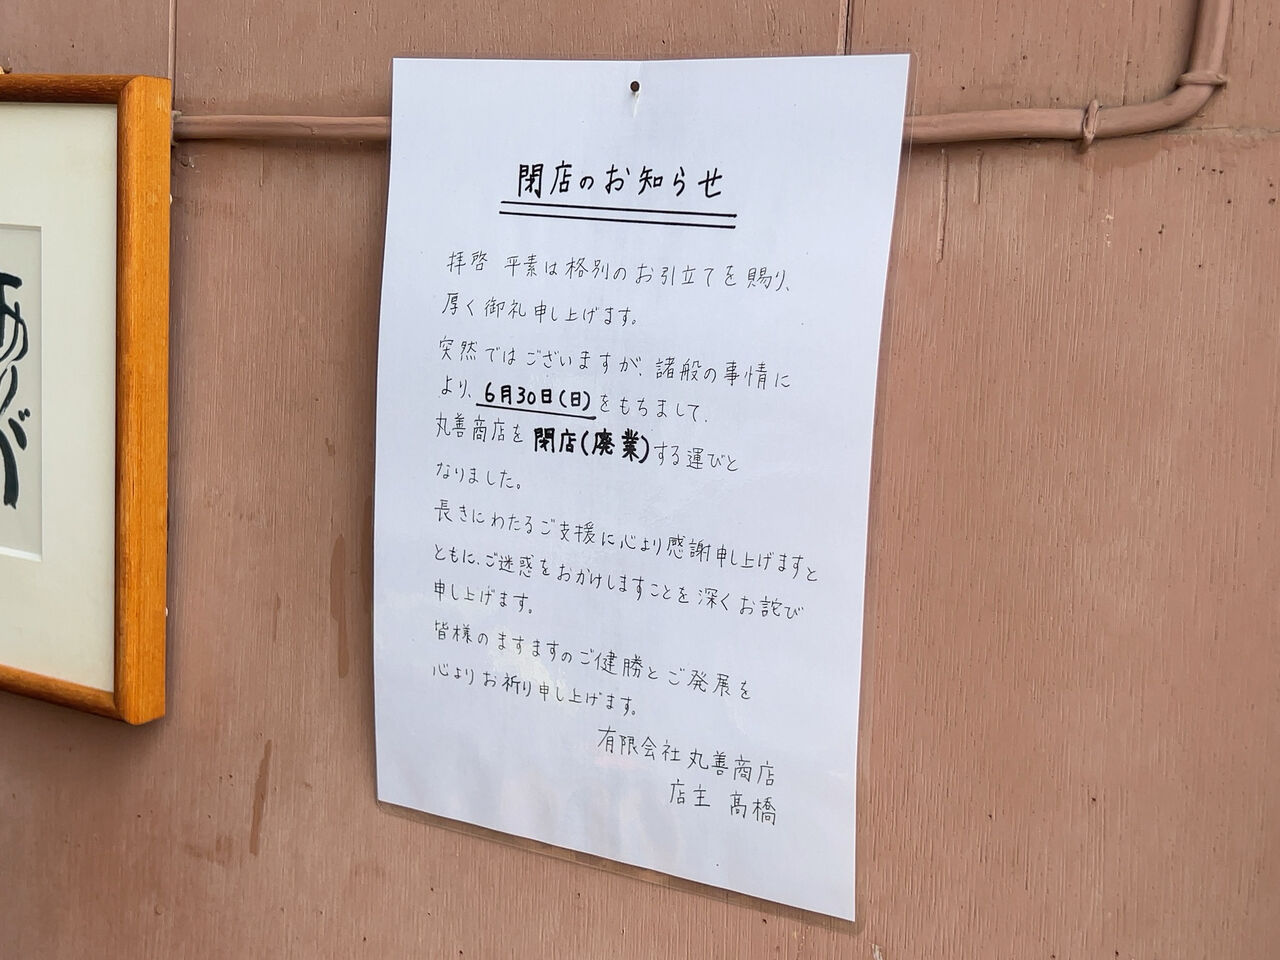 閉店のお知らせ
拝啓 平素は格別のお引立てを賜り、
厚く御礼申し上げます。
突然ではございますが、諸般の事情に
より、6月30日(日)をもちまして、
丸善商店を閉店(廃業)する運びと
なりました。
長きにわたるご支援に心より感謝申し上げますと
ともに、ご迷惑をおかけしますことを深くお詫び
申し上げます。
皆様のますますのご健勝とご発展を
心よりお祈り申し上げます。
有限会社 丸善商店
店主 髙橋